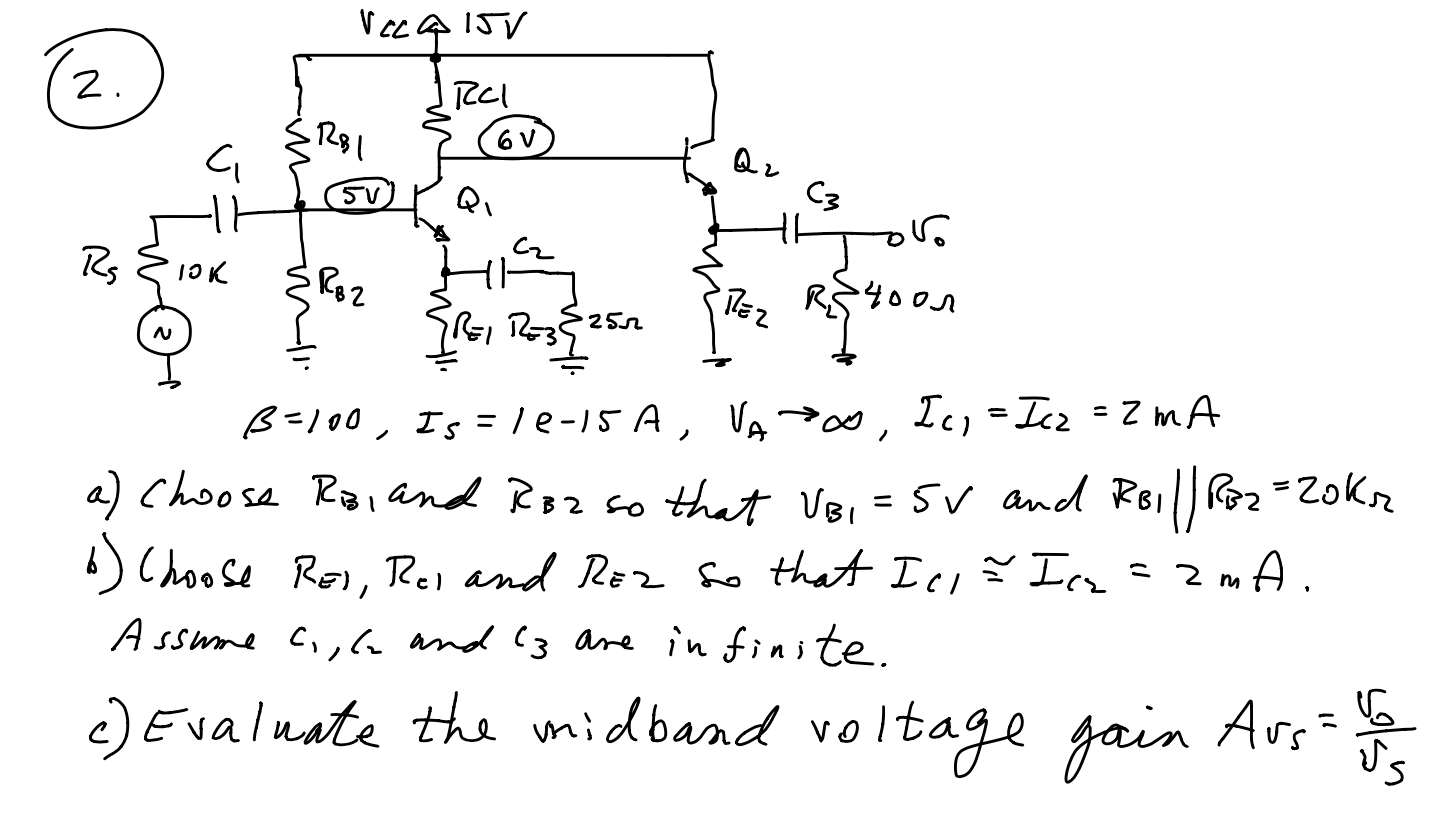 2.
VCC 15V
RC1
RB1
6V
C1
5V
Q1
Q2
C3
Rs
10K
C2
vo
RB2
RE1
RE3
25Ω
RE2
RL
400Ω
β=100, Is = 1e-15 A, VA→∞, Ic1 = Ic2 = 2 mA
a) Choose RB1 and RB2 so that VB1 = 5V and RB1||RB2=20KΩ
b) Choose RE1, RC1 and RE2 so that Ic1 ≅ Ic2 = 2 mA.
Assume C1, C2 and C3 are infinite.
c) Evaluate the midband voltage gain Avs = vo/vs